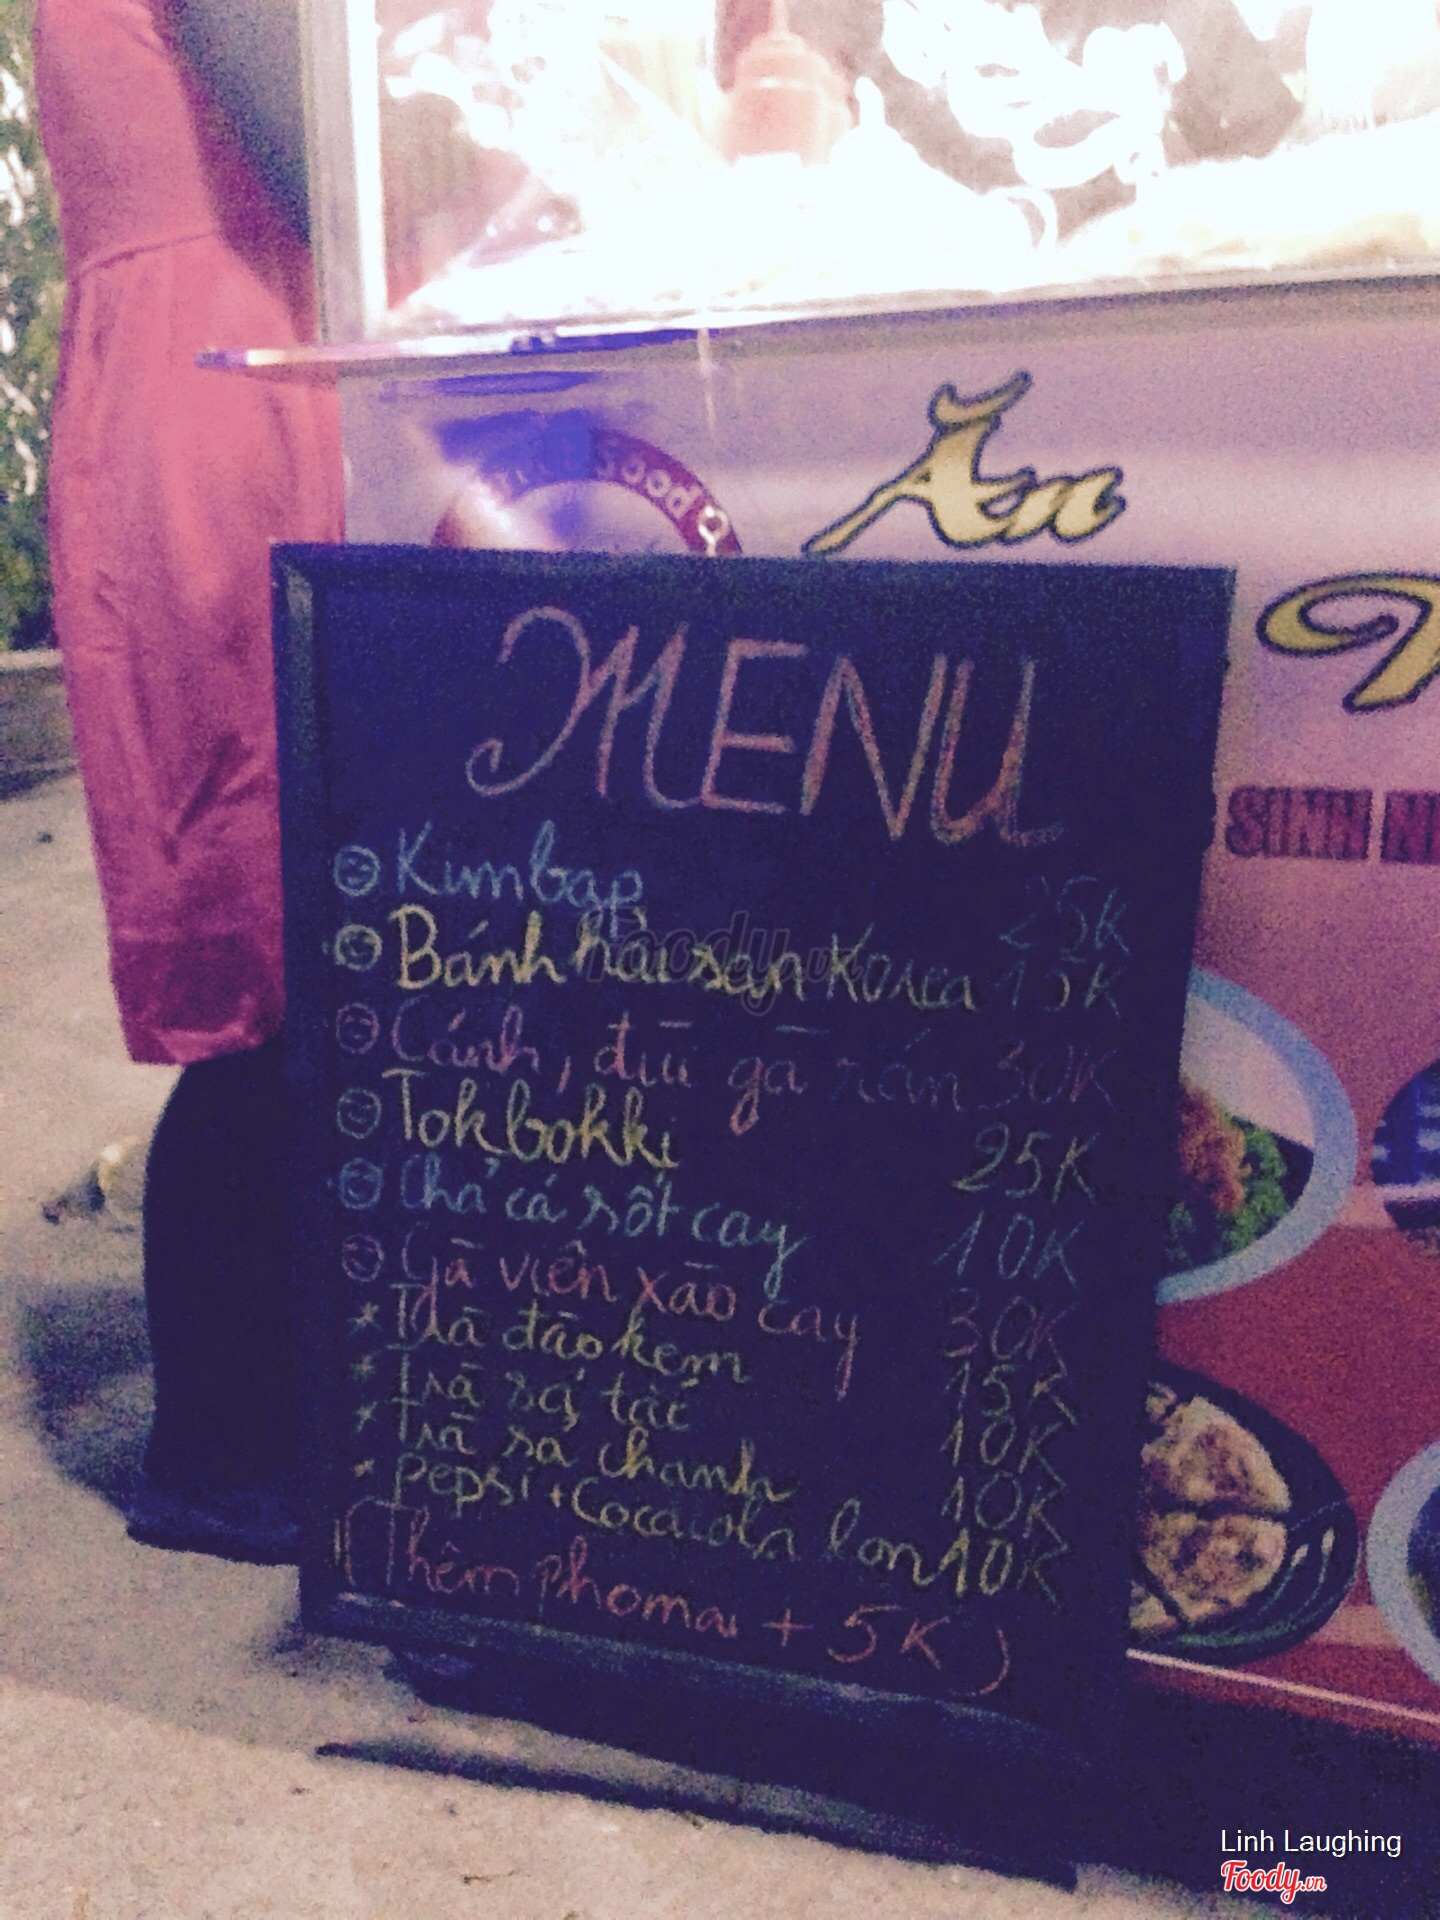 Ăn
good
SINH
MENU
Kimbap 25K
Bánh hải sản Korea 15K
Cánh, đùi gà rán 30K
Tokbokki 25K
Chả cá sốt cay 10K
Gà viên xào cay 30K
* Trà đào kem 15K
* Trà sả tắc 10K
* Trà sả chanh 10K
* pepsi + Cocacola lon 10K
(Thêm phomai + 5K)
Foody.vn
Linh Laughing
Foody.vn